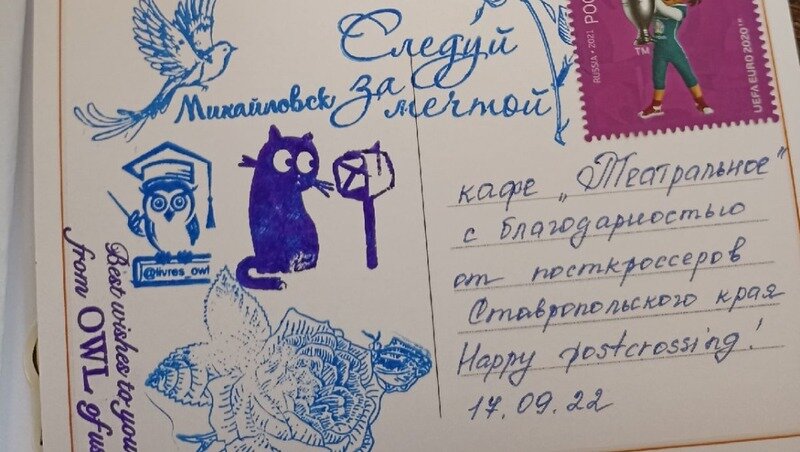 Следуй
за мечтой
Михайловск
РОС
RUSSIA • 2021
TM
UEFA EURO 2020™
@livres_owl
Best wishes to you
from OWL of us
кафе „Театральное"
с благодарностью
от посткроссеров
Ставропольского края
Happy postcrossing!
17.09.22